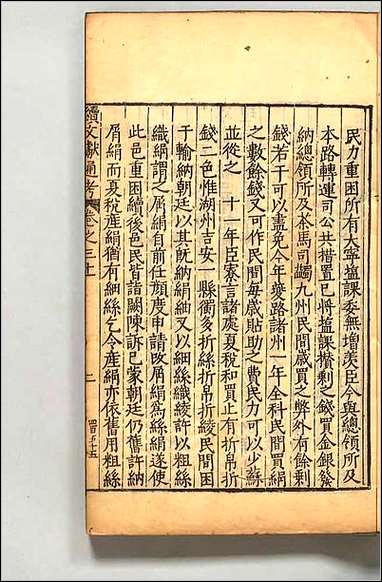 民力重困所有大寧鹽課委無增羨臣今與總領所及
本路轉運司公共措置已將鹽課攢剩之錢買金銀發
納總領所及茶馬司蠲九州民間歲買之弊外有餘剩
錢若干可以盡免今年夔路諸州一年全科民間買絹
之數餘錢又可作民間每歲貼助之費民力可以少蘇
並從之 十一年臣寮言諸處夏稅和買止有折帛折
錢二色惟湖州吉安一縣獨多折絲折綾民間困
于輸納朝廷以其既納絹紬又以細絲織綾許以粗絲
織絹謂之屑絹自前任顏度申請改屑絹為絲絹遂使
此邑重困續後邑民皆詣闕陳訴已蒙朝廷仍舊許納
屑絹而夏稅產絹猶有細絲乞令產絹亦依舊用粗絲
續文獻通考 卷之三十 二